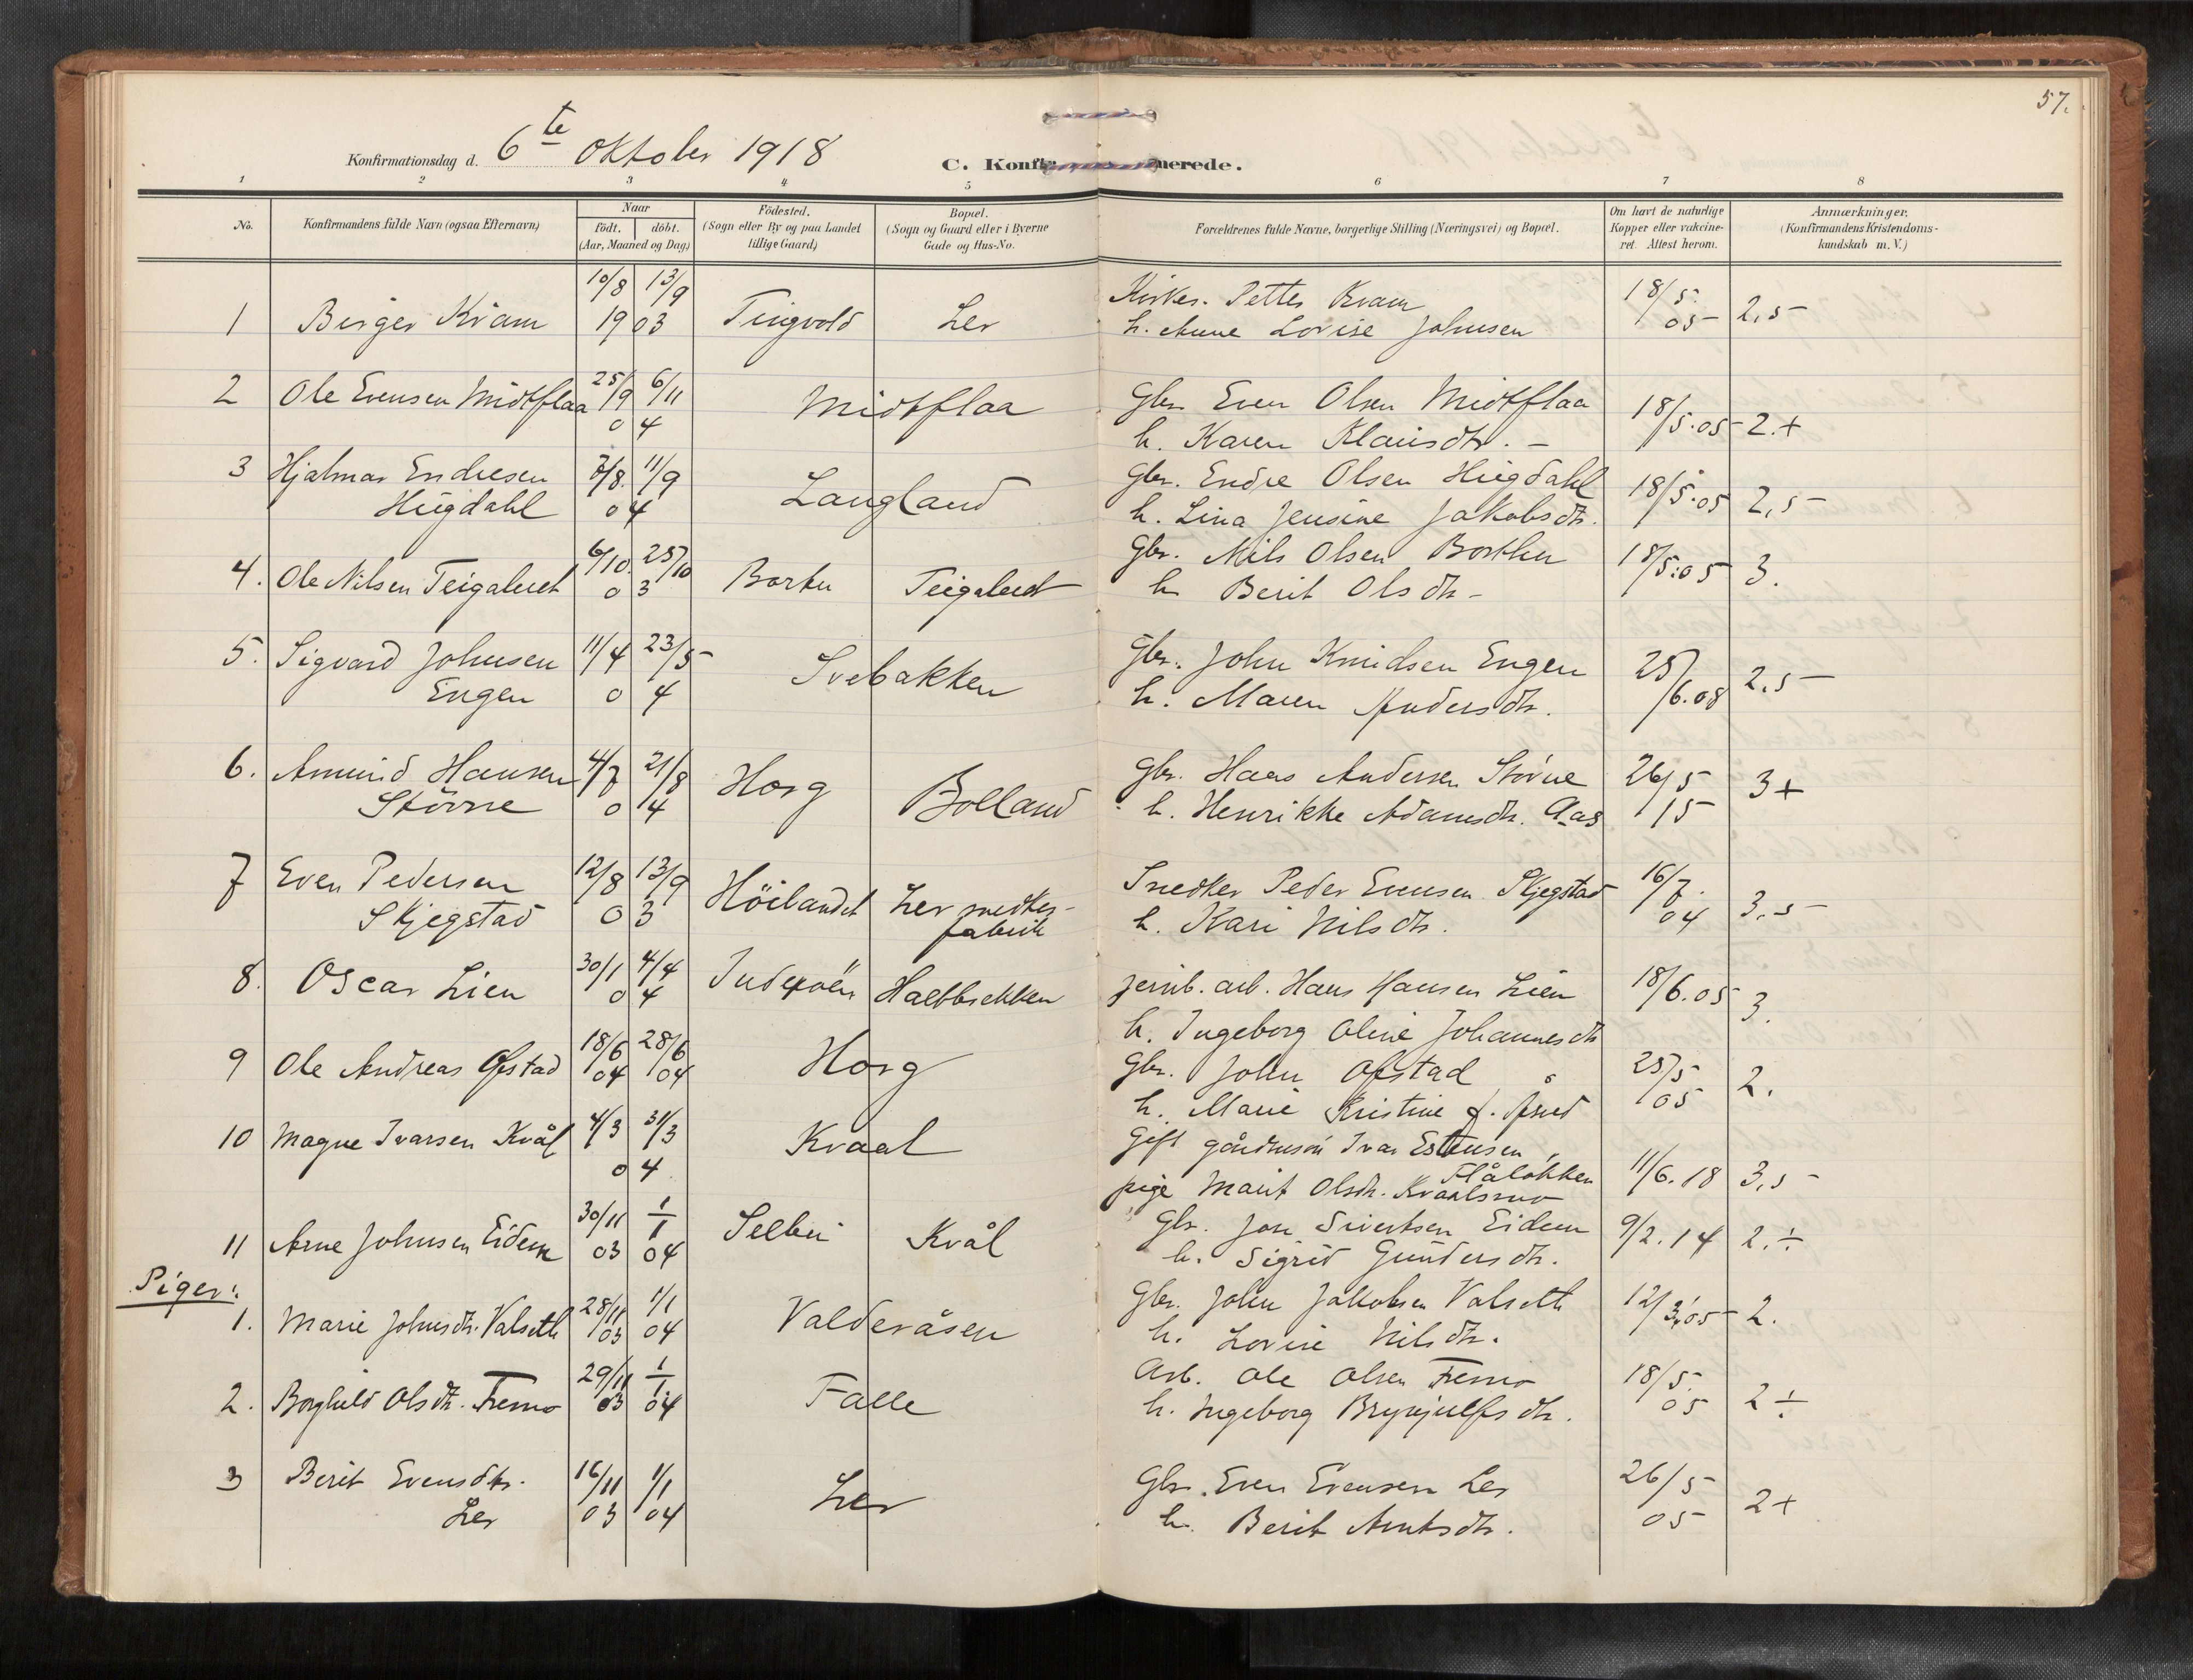 57.
Konfirmationsdag d. 6te Oktober 1918
C. Konfirmerede.
1 2 3 4 5 6 7 8
No.
Konfirmandens fulde Navn (ogsaa Efternavn)
Naar
födt. döbt.
(Aar, Maaned og Dag)
Födested.
(Sogn eller By og paa Landet
tillige Gaard)
Bopæl.
(Sogn og Gaard eller i Byerne
Gade og Hus-No.
Forældrenes fulde Navne, borgerlige Stilling (Næringsvei) og Bopæl.
Om havt de naturlige
Kopper eller vakcine-
ret. Attest herom.
Anmærkninger.
(Konfirmandens Kristendoms-
kundskab m. V.)
10/8 13/9 Kirkes. Petter Kvam 18/5.
1 Birger Kvam 19 03 Tingvold Ler h. Anne Lovise Johnsen 05 2,5
2 Ole Evensen Midtflaa 25/9 6/11 Midtflaa Gbr. Even Olsen Midtflaa 18/5.05 2.+
0 4 h. Karen Klausdtr. –
3 Hjalmar Endresen 7/8. 11/9 Langland Gbr. Endre Olsen Hugdahl 18/5.05 2,5
Hugdahl 0 4 h. Lina Jensine Jakobsdtr.
4. Ole Nilsen Teigaleret 6/10. 25/10 Borten Teigaleret Gbr. Nils Olsen Borthen 18/5.05 3.
0 3 h Berit Olsdtr –
5. Sigvard Johnsen 11/4 23/5 Svebakken Gbr. John Knudsen Engen 25/6.08 2.5
Engen 0 4 h. Maren Andersdtr.
6. Amund Hansen 4/7 21/8 Horg Bolland Gbr. Hans Andersen Störvne 26/5 3+
Störvne 0 4 h. Henrikke Adamsdtr. Aas 15
7 Even Pedersen 12/8 13/9 Höilandet Ler snedker- Snedker Peder Evensen Skjegstad 16/7. 3.5
Skjegstad 0 3 fabrik h. Kari Nilsdtr. 04
8. Oscar Lien 30/1 4/4 Inderöen Haelbbekken jernb. arb. Hans Hansen Lien 18/6.05 3.
0 4 h. Ingeborg Oline Johannesdtr
9 Ole Andreas Ofstad 18/6 28/6 Horg Gbr. John Ofstad 25/5 2.
04 04 h. Marie Kristine f. 05
10 Magne Ivarsen Kvål 4/3 31/3 Kvaal Gift gårdmsön Ivar Estensen
0 4 Flåløkken 11/6.18 3,5
pige Marit Olsdtr. Kvaalsmo
11 Arne Johnsen Eidem 30/11 1/1 Selbu Kvål Gbr. Jon Sivertsen Eidem 9/2.14 2.÷
03 04 h. Sigrid Gundersdtr.
Piger:
1. Marie Johnsdtr. Valseth 28/11 1/1 Valderåsen Gbr. John Jakobsen Valseth 12/3.05 2.
03 04 h. Lovise Nilsdtr.
2. Borghild Olsdtr. Fremo 29/11 1/1 Falle Arb. Ole Olsen Fremo 18/5. 2÷
03 04 h. Ingeborg Brynjulfsdtr. 05
3 Berit Evensdtr. 16/11 1/1 Ler Gbr. Even Evensen Ler 26/5 2+
Ler 03 04 h. Berit Arntsdtr. 05